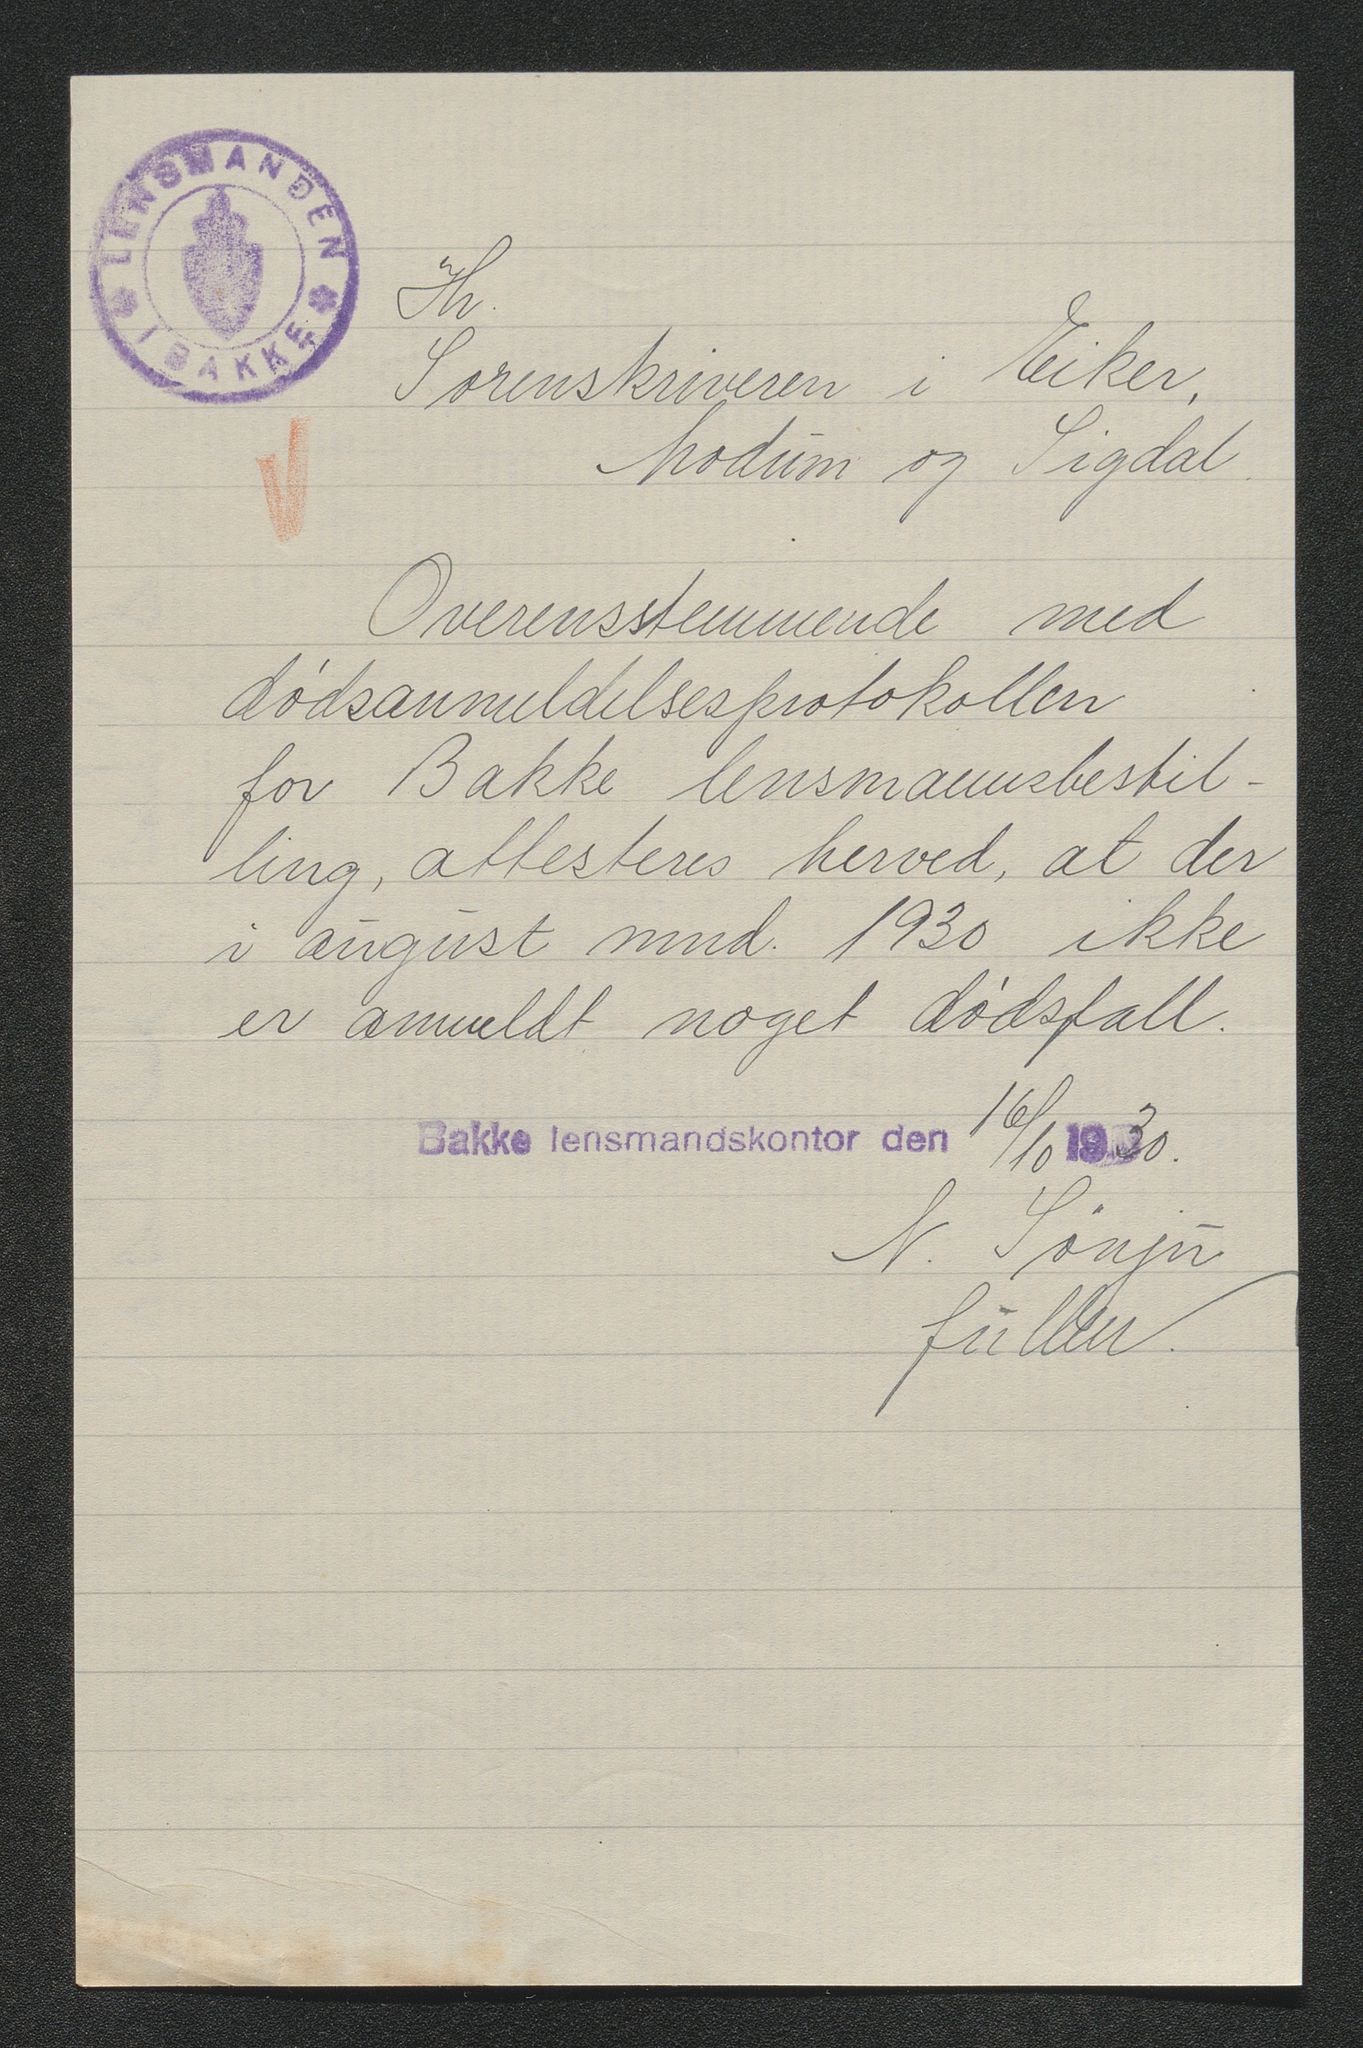 LENSMANDEN
I BAKKE
Hr.
Sorenskriveren i Eiker,
Modum og Sigdal.
Overensstemmende med
dødsanmeldelsesprotokollen
for Bakke lensmannsbestil-
ling, attesteres herved, at der
i august mnd. 1930 ikke
er anmeldt noget dødsfall.
Bakke lensmandskontor den 16/10 1930.
N. Sönju
fullm.